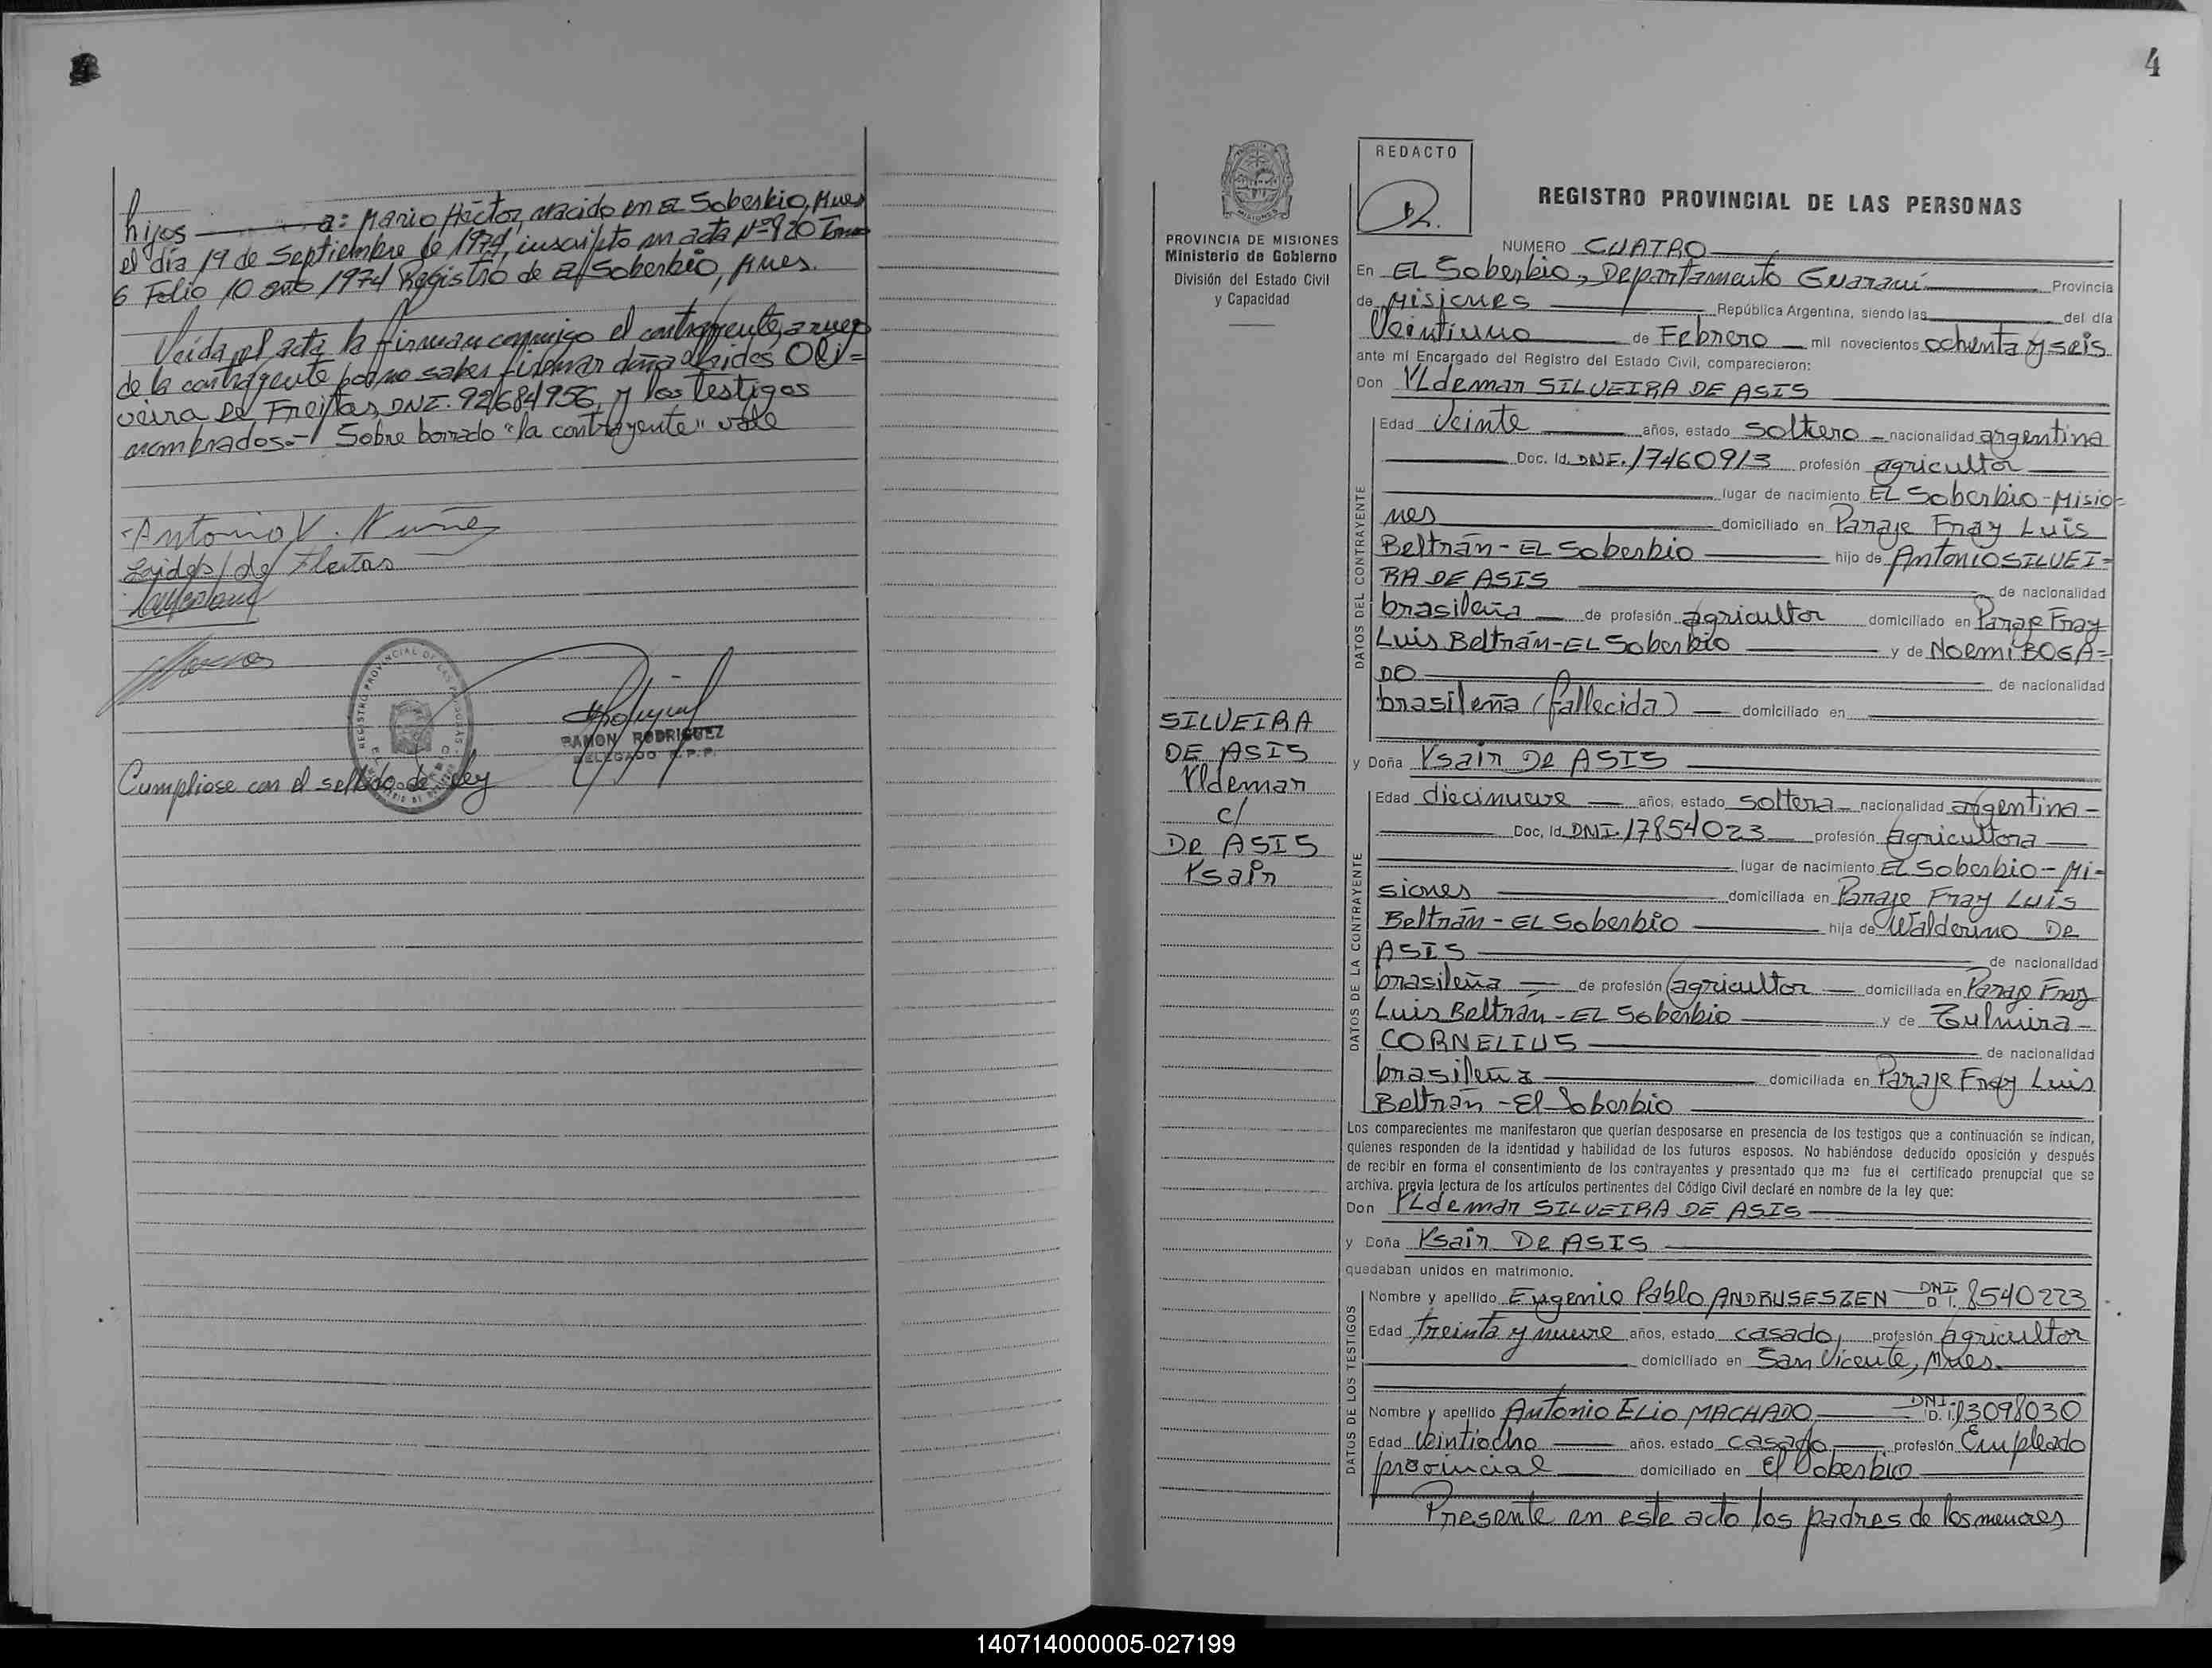 hijos — a: Mario Héctor, nacido en El Soberbio, Mnes
el día 19 de Septiembre de 1974, inscripto en acta Nº 920 Tomo
6 Folio 10 año 1974 Registro de El Soberbio, Mnes.
Leída el acta la firman conmigo el contrayente, a ruego
de la contrayente por no saber firmar doña Laides Oli=
veira De Freitas, DNI. 92/684956, y los testigos
nombrados.- Sobre borrado "la contrayente" vale
Antonio V. Nuñez
Laides de Fleitas
RAMON RODRIGUEZ
DELEGADO R.P.P.
REGISTRO PROVINCIAL DE LAS PERSONAS
Cumpliose con el sellado de ley
4
PROVINCIA DE MISIONES
Ministerio de Gobierno
División del Estado Civil
y Capacidad
SILVEIRA
DE ASIS
Yldemar
c/
De ASIS
Ysair
REDACTO
REGISTRO PROVINCIAL DE LAS PERSONAS
NUMERO CUATRO
En EL Soberbio, Departamento Guaraní Provincia
de Misiones República Argentina, siendo las del día
Veintiuno de Febrero mil novecientos ochenta y seis
ante mí Encargado del Registro del Estado Civil, comparecieron:
Don YLdemar SILVEIRA DE ASIS
DATOS DEL CONTRAYENTE
Edad Veinte años, estado soltero nacionalidad argentina
Doc. Id. DNI. 17460913 profesión agricultor
lugar de nacimiento EL Soberbio - Misio=
nes domiciliado en Paraje Fray Luis
Beltrán - EL Soberbio hijo de Antonio SILVEI=
RA DE ASIS de nacionalidad
brasileña de profesión agricultor domiciliado en Paraje Fray
Luis Beltrán - EL Soberbio y de Noemi BOGA=
DO de nacionalidad
brasileña (fallecida) domiciliado en
y Doña Ysair De ASIS
DATOS DE LA CONTRAYENTE
Edad diecinueve años, estado soltera nacionalidad argentina -
Doc. Id. DNI. 17854023 profesión agricultora
lugar de nacimiento EL Soberbio - Mi=
siones domiciliada en Paraje Fray Luis
Beltrán - EL Soberbio hija de Walderino De
ASIS de nacionalidad
brasileña de profesión agricultor domiciliada en Paraje Fray
Luis Beltrán - EL Soberbio y de Tulmira -
CORNELIUS de nacionalidad
brasileña domiciliada en Paraje Fray Luis
Beltrán - El Soberbio
Los comparecientes me manifestaron que querían desposarse en presencia de los testigos que a continuación se indican,
quienes responden de la identidad y habilidad de los futuros esposos. No habiéndose deducido oposición y después
de recibir en forma el consentimiento de los contrayentes y presentado que me fue el certificado prenupcial que se
archiva, previa lectura de los artículos pertinentes del Código Civil declaré en nombre de la ley que:
Don YLdemar SILVEIRA DE ASIS
y Doña Ysair De ASIS
quedaban unidos en matrimonio.
DATOS DE LOS TESTIGOS
Nombre y apellido Eugenio Pablo ANDRUSESZEN DNI D. I. 8540223
Edad treinta y nueve años, estado casado, profesión agricultor
domiciliado en San Vicente, Mnes.
Nombre y apellido Antonio ELio MACHADO DNI. D. I. 13098030
Edad Veintiocho años, estado casado profesión Empleado
provincial domiciliado en El Soberbio
Presente en este acto los padres de los menores
140714000005-027199